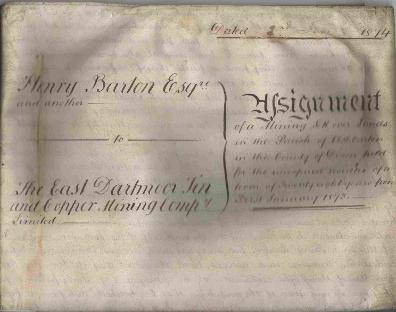 Dated 2nd 1874
Henry Barton Esqre
and another
to
The East Dartmoor Tin
and Copper Mining Compy
Limited
Assignment
of a Mining Sett over Lands
in the Parish of
in the County of Devon held
for the unexpired residue of a
term of Twenty eight years from
First January 1873